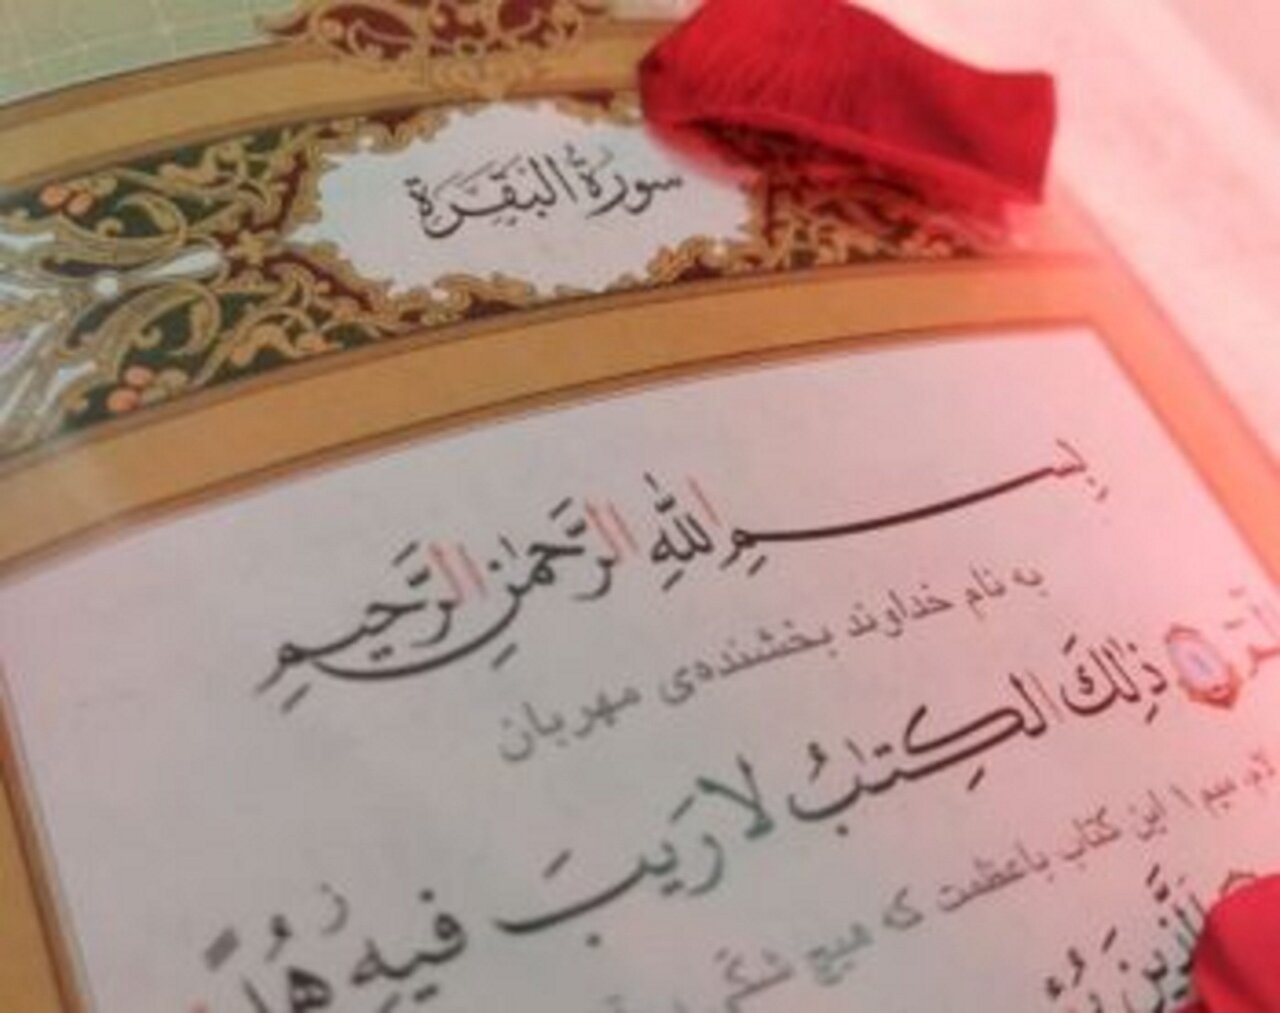 سورة البقرة
بِسْمِ اللَّهِ الرَّحْمٰنِ الرَّحِيمِ
به نام خداوند بخشنده‌ی مهربان
الٓمٓ ۱ ذٰلِكَ الْكِتٰبُ لا رَيبَ فيهِ هُ
میم ۱ این کتاب باعظمت که هیچ شکّی
الَّذينَ